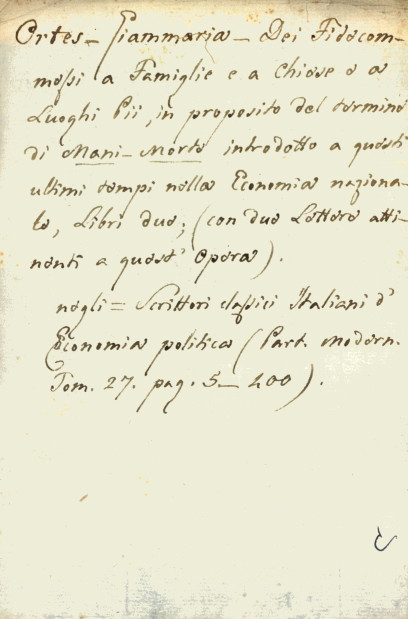 Ortes - Giammaria - Dei Fidecom-
messi a Famiglie e a Chiese o a
Luoghi Pii, in proposito del termine
di Mani-Morte introdotto a questi
ultimi tempi nella Economia naziona-
le, Libri due; (con due Lettere atti-
nenti a quest' Opera).
negli = Scrittori classici Italiani d'
Economia politica (Part. modern.
Tom. 27. pag. 5 - 400).